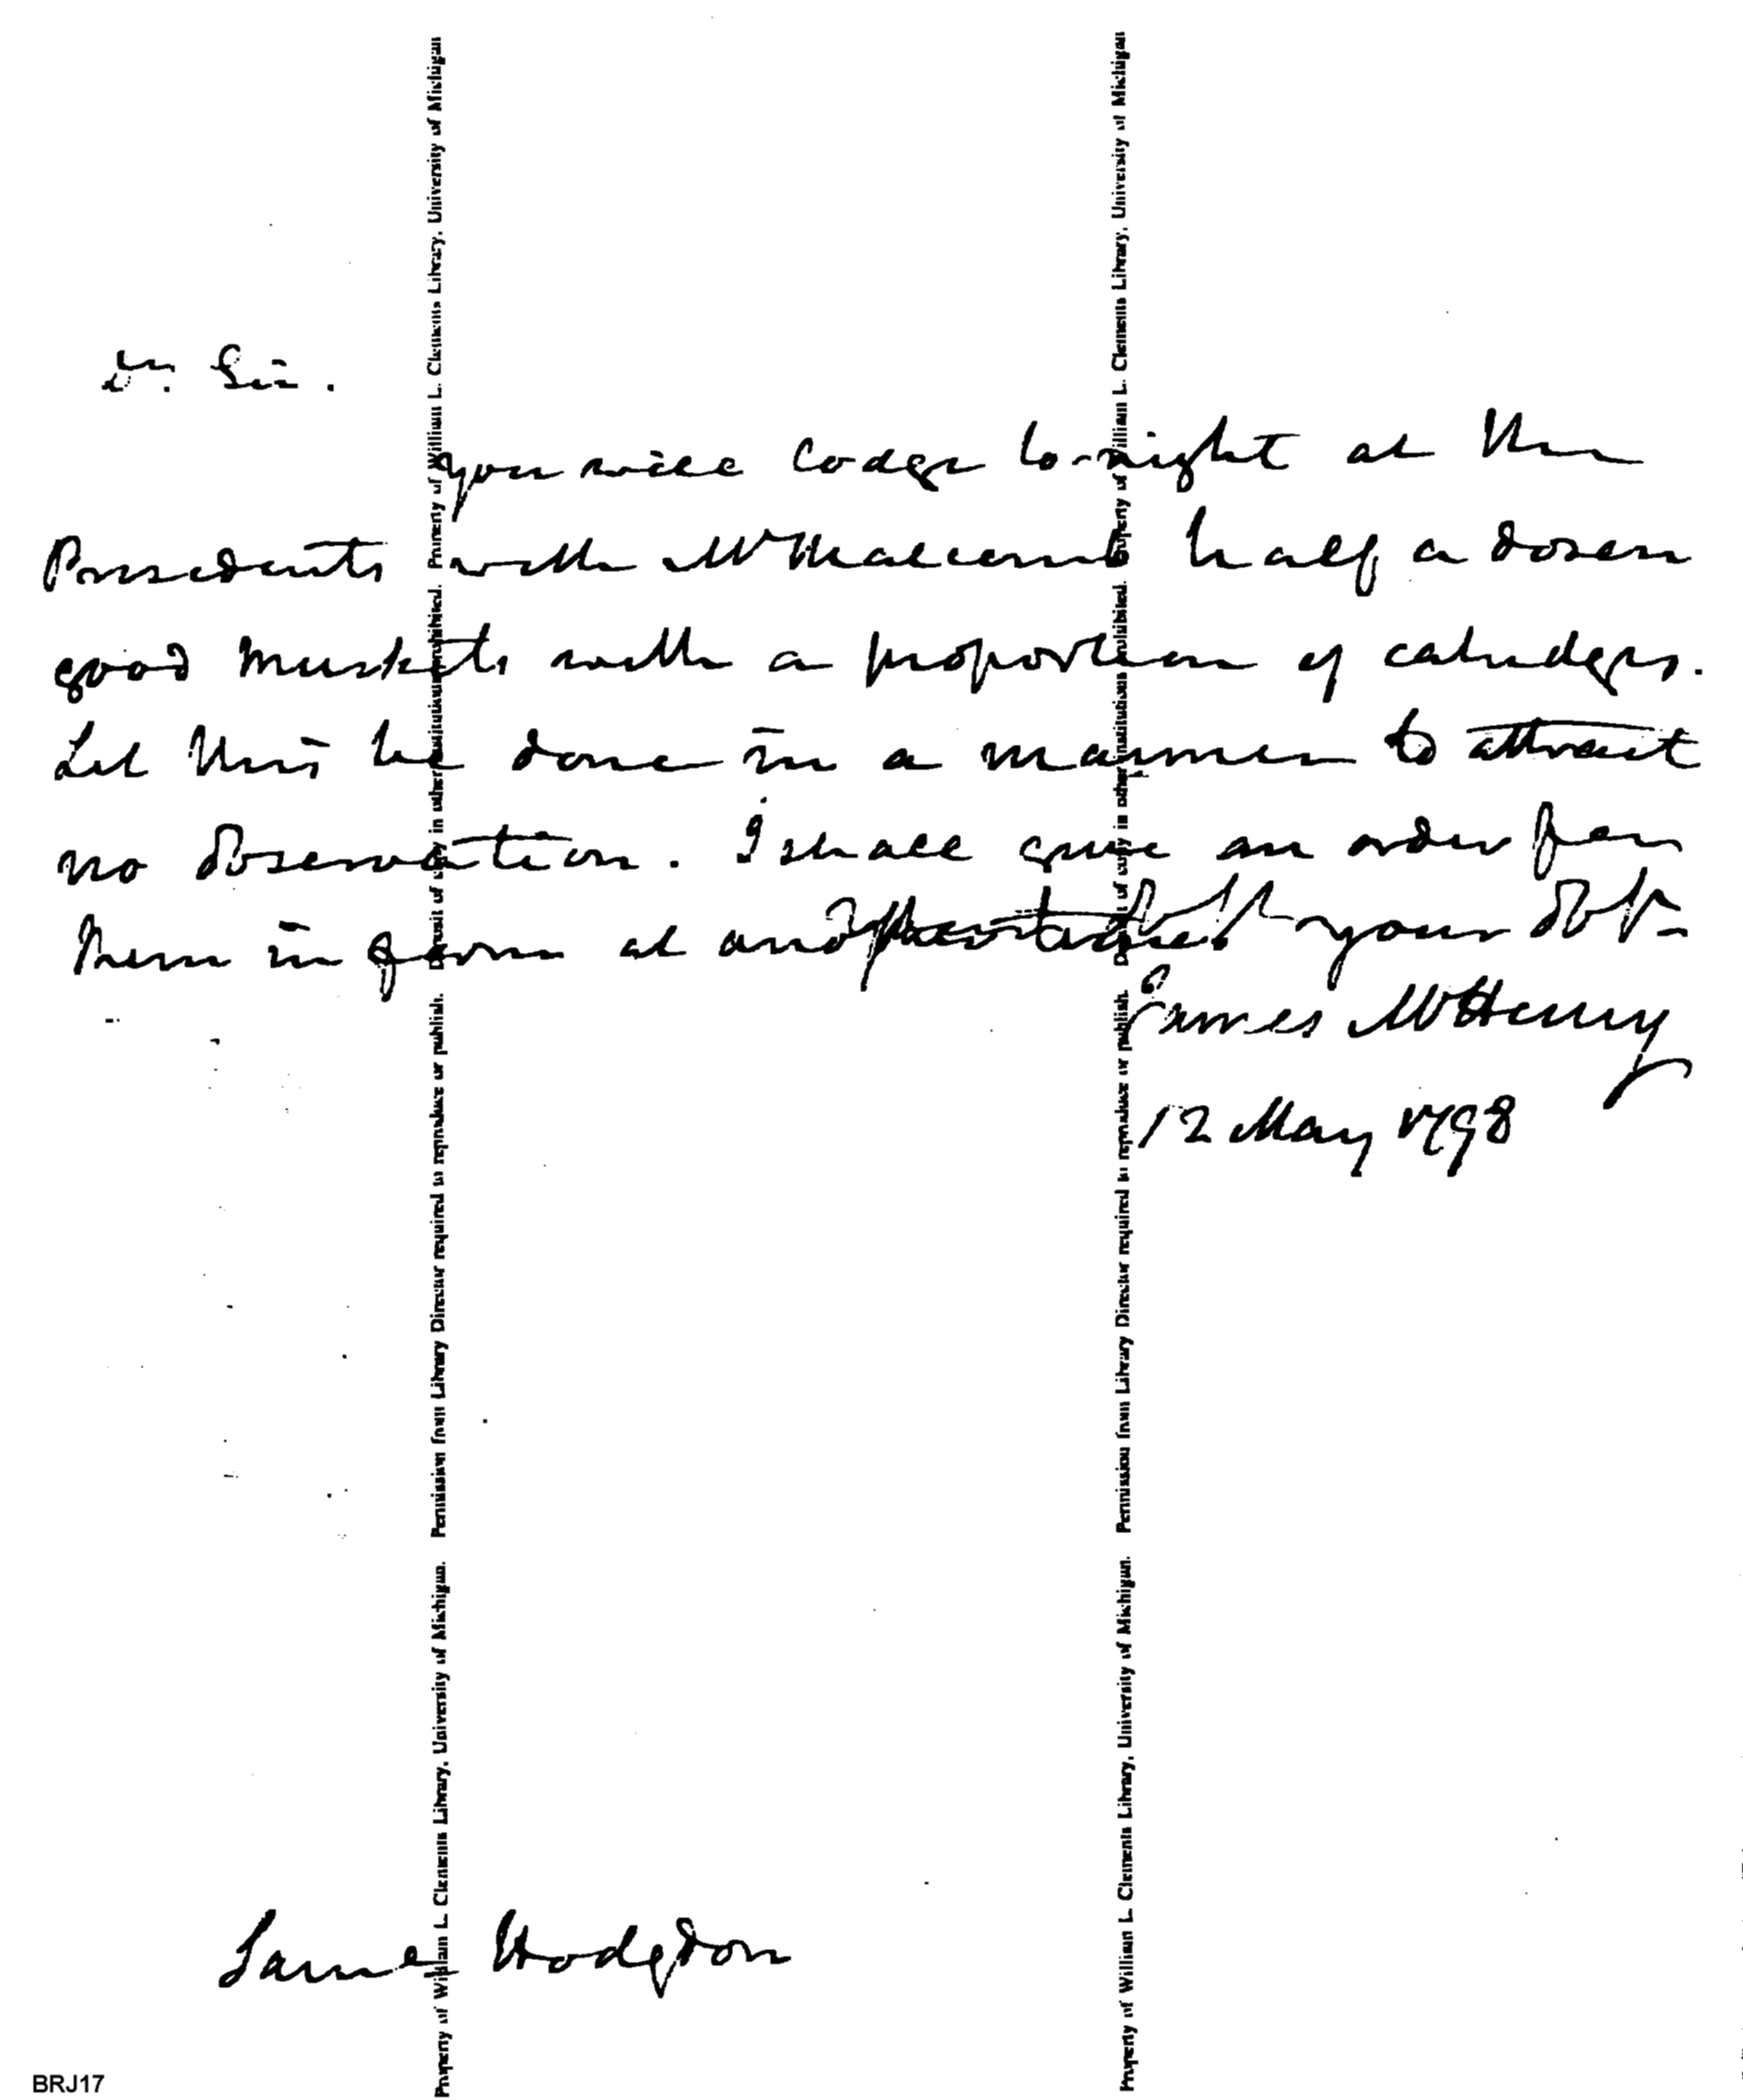 Dr. Sir.
you will lodge to-night at the
Presidents with Mr Malcomb half a dozen
good muskets with a proportion of catridges.
Let this be done in a manner to attract
no observation. I shall give an order for
them in form at and your Obt
James McHenry
12 May 1798
Samuel Hodgdon
BRJ17
Property of William L. Clements Library, University of Michigan. Permission from Library Director required to reproduce or publish. Deposit of copy in other institutions prohibited. Property of William L. Clements Library, University of Michigan
Property of William L. Clements Library, University of Michigan. Permission from Library Director required to reproduce or publish. Deposit of copy in other institutions prohibited. Property of William L. Clements Library, University of Michigan